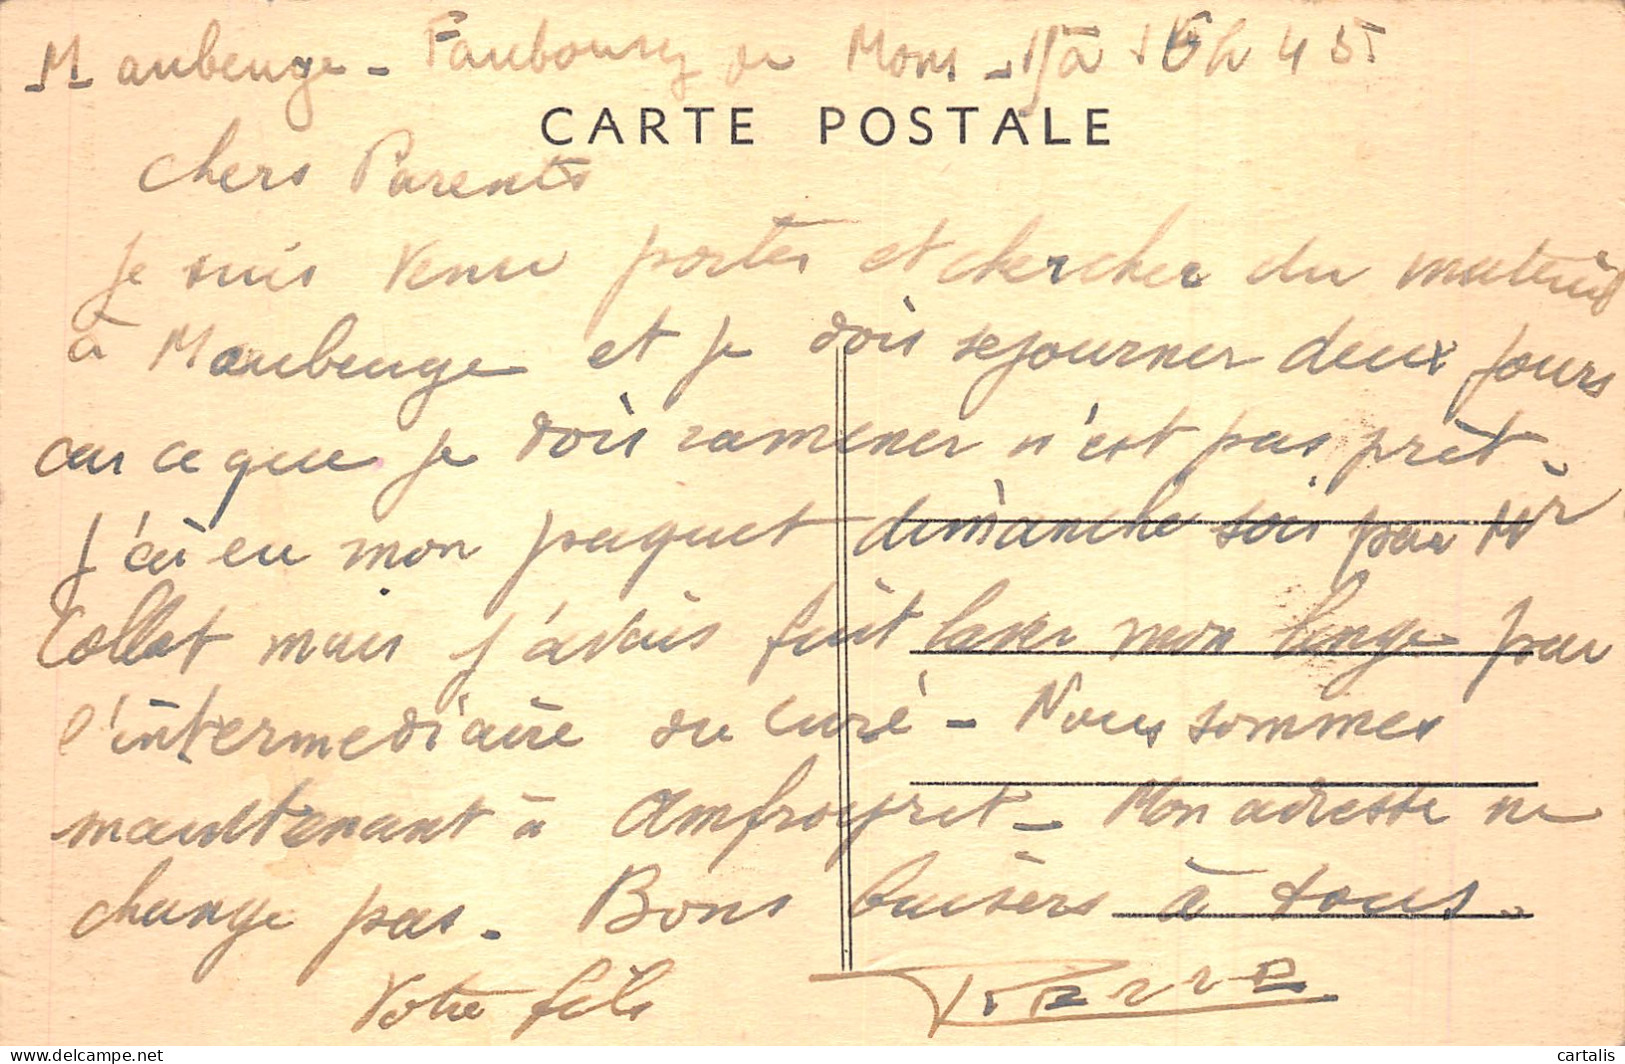 Maubeuge - Faubourg de Mons - à 16h 45
CARTE POSTALE
Chers Parents
Je suis venu porter et chercher du matériel
à Maubeuge et je dois sejourner deux jours
car ce que je dois ramener n'est pas prêt -
J'ai eu mon paquet dimanche soir par Mr
Collet mais j'avais fait laver mon linge par
l'intermediaire du curé - Nous sommes
maintenant à Amfroipret - Mon adresse ne
change pas - Bons baisers à tous.
Votre fils Pierre
cartalis